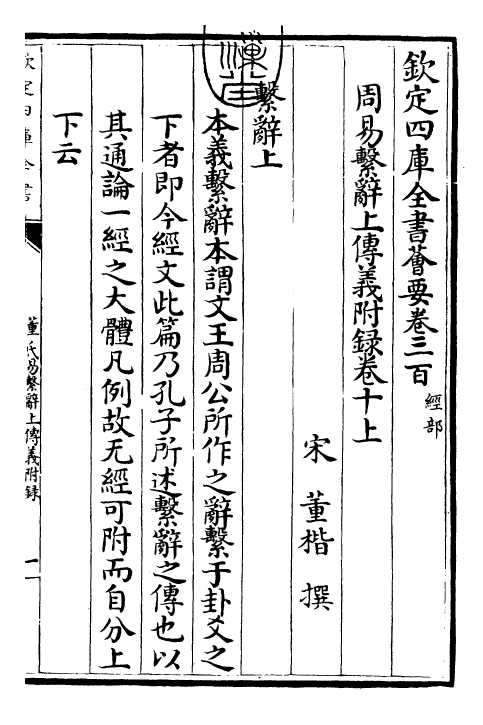 欽定四庫全書薈要卷三百 經部
周易繫辭上傳義附録卷十上
宋 董楷 撰
繫辭上
本義繫辭本謂文王周公所作之辭繫于卦爻之
下者即今經文此篇乃孔子所述繫辭之傳也以
其通論一經之大體凡例故无經可附而自分上
下云
欽定四庫全書
董氏易繫辭上傳義附録
一